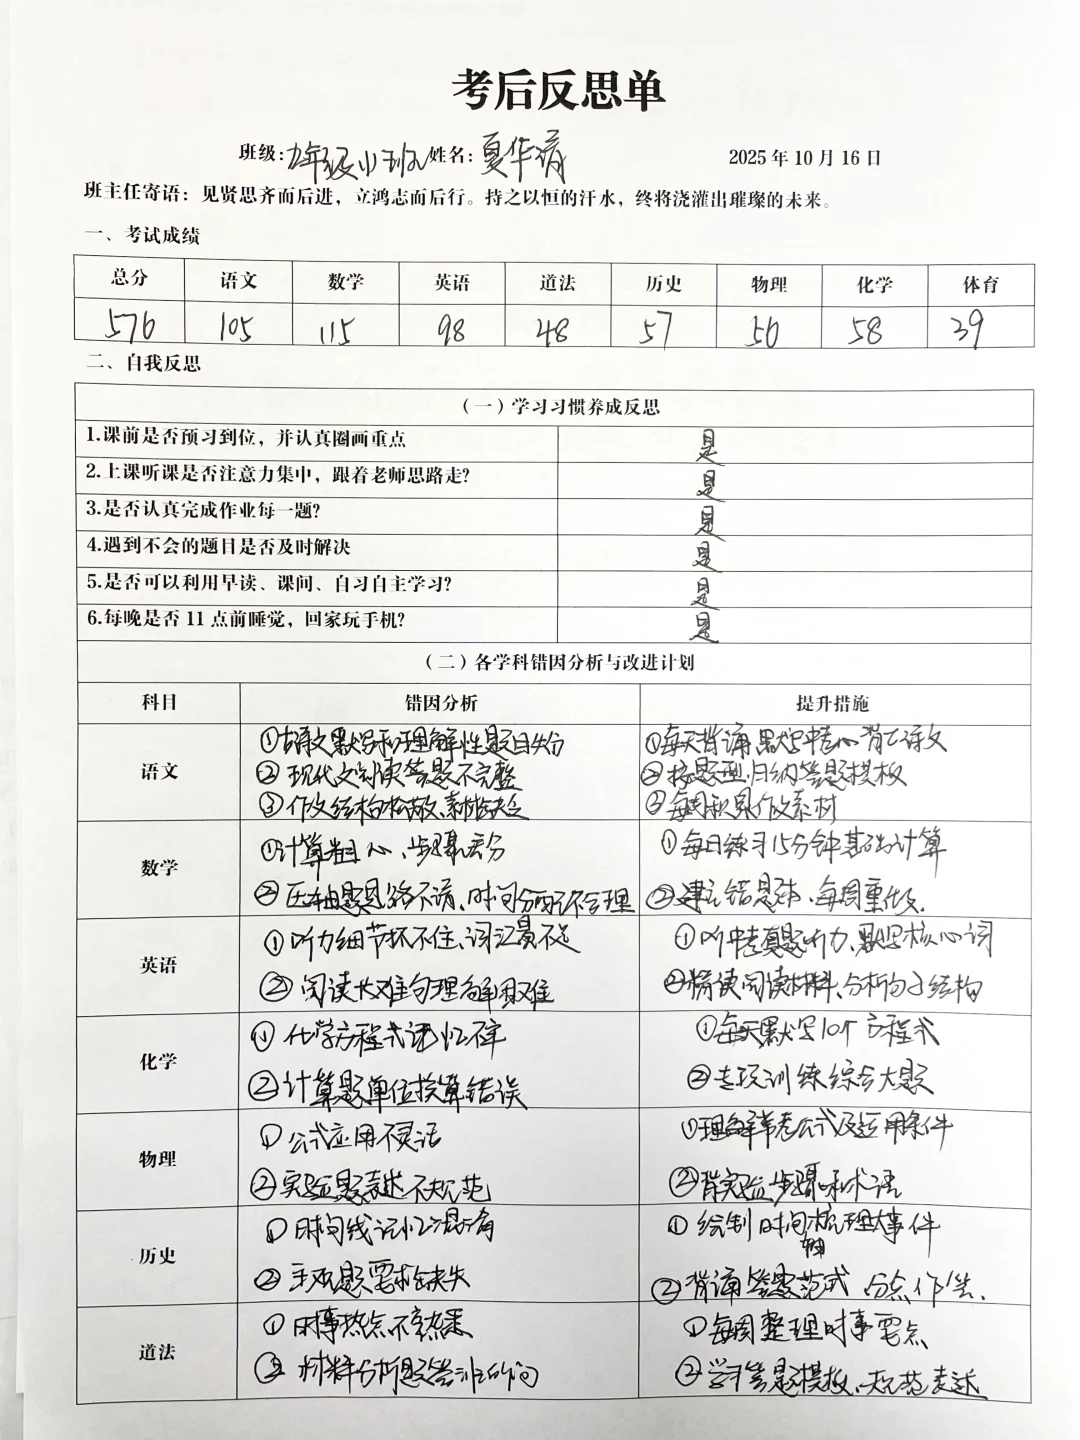 考后反思单
班级:九年级小班 姓名:夏华清 2025年10月16日
班主任寄语：见贤思齐而后进，立鸿志而后行。持之以恒的汗水，终将浇灌出璀璨的未来。
一、考试成绩
总分 语文 数学 英语 道法 历史 物理 化学 体育
576 105 115 98 48 57 56 58 39
二、自我反思
（一）学习习惯养成反思
1.课前是否预习到位，并认真圈画重点 是
2.上课听课是否注意力集中，跟着老师思路走? 是
3.是否认真完成作业每一题? 是
4.遇到不会的题目是否及时解决 是
5.是否可以利用早读、课间、自习自主学习? 是
6.每晚是否11点前睡觉，回家玩手机? 是
（二）各学科错因分析与改进计划
科目 错因分析 提升措施
语文
①诗文默写和理解性题目失分
②现代文阅读答题不完整
③作文结构松散、素材缺乏
①每天背诵默写中考必背古诗文
②按题型归纳答题模板
③每周积累作文素材
数学
①计算粗心、步骤丢分
②压轴题思路不清、时间分配不合理
①每日练习15分钟基础计算
②建立错题本、每周重做.
英语
①听力细节抓不住、词汇量不足
②阅读长难句理解困难
①听中考真题听力、默写核心词
②精读阅读材料、分析句子结构
化学
①化学方程式记忆不牢
②计算题单位换算错误
①每天默写10个方程式
②专项训练综合大题
物理
①公式应用不灵活
②实验题表述不规范
①理解单元公式及运用条件
②背实验步骤和术语
历史
①时间线记忆混淆
②主观题要点缺失
①绘制时间轴梳理大事件
②背诵答案范式 分点作答.
道法
①时事热点不熟悉
②材料分析题答非所问
①每周整理时事要点
②学习答题模板、规范表述